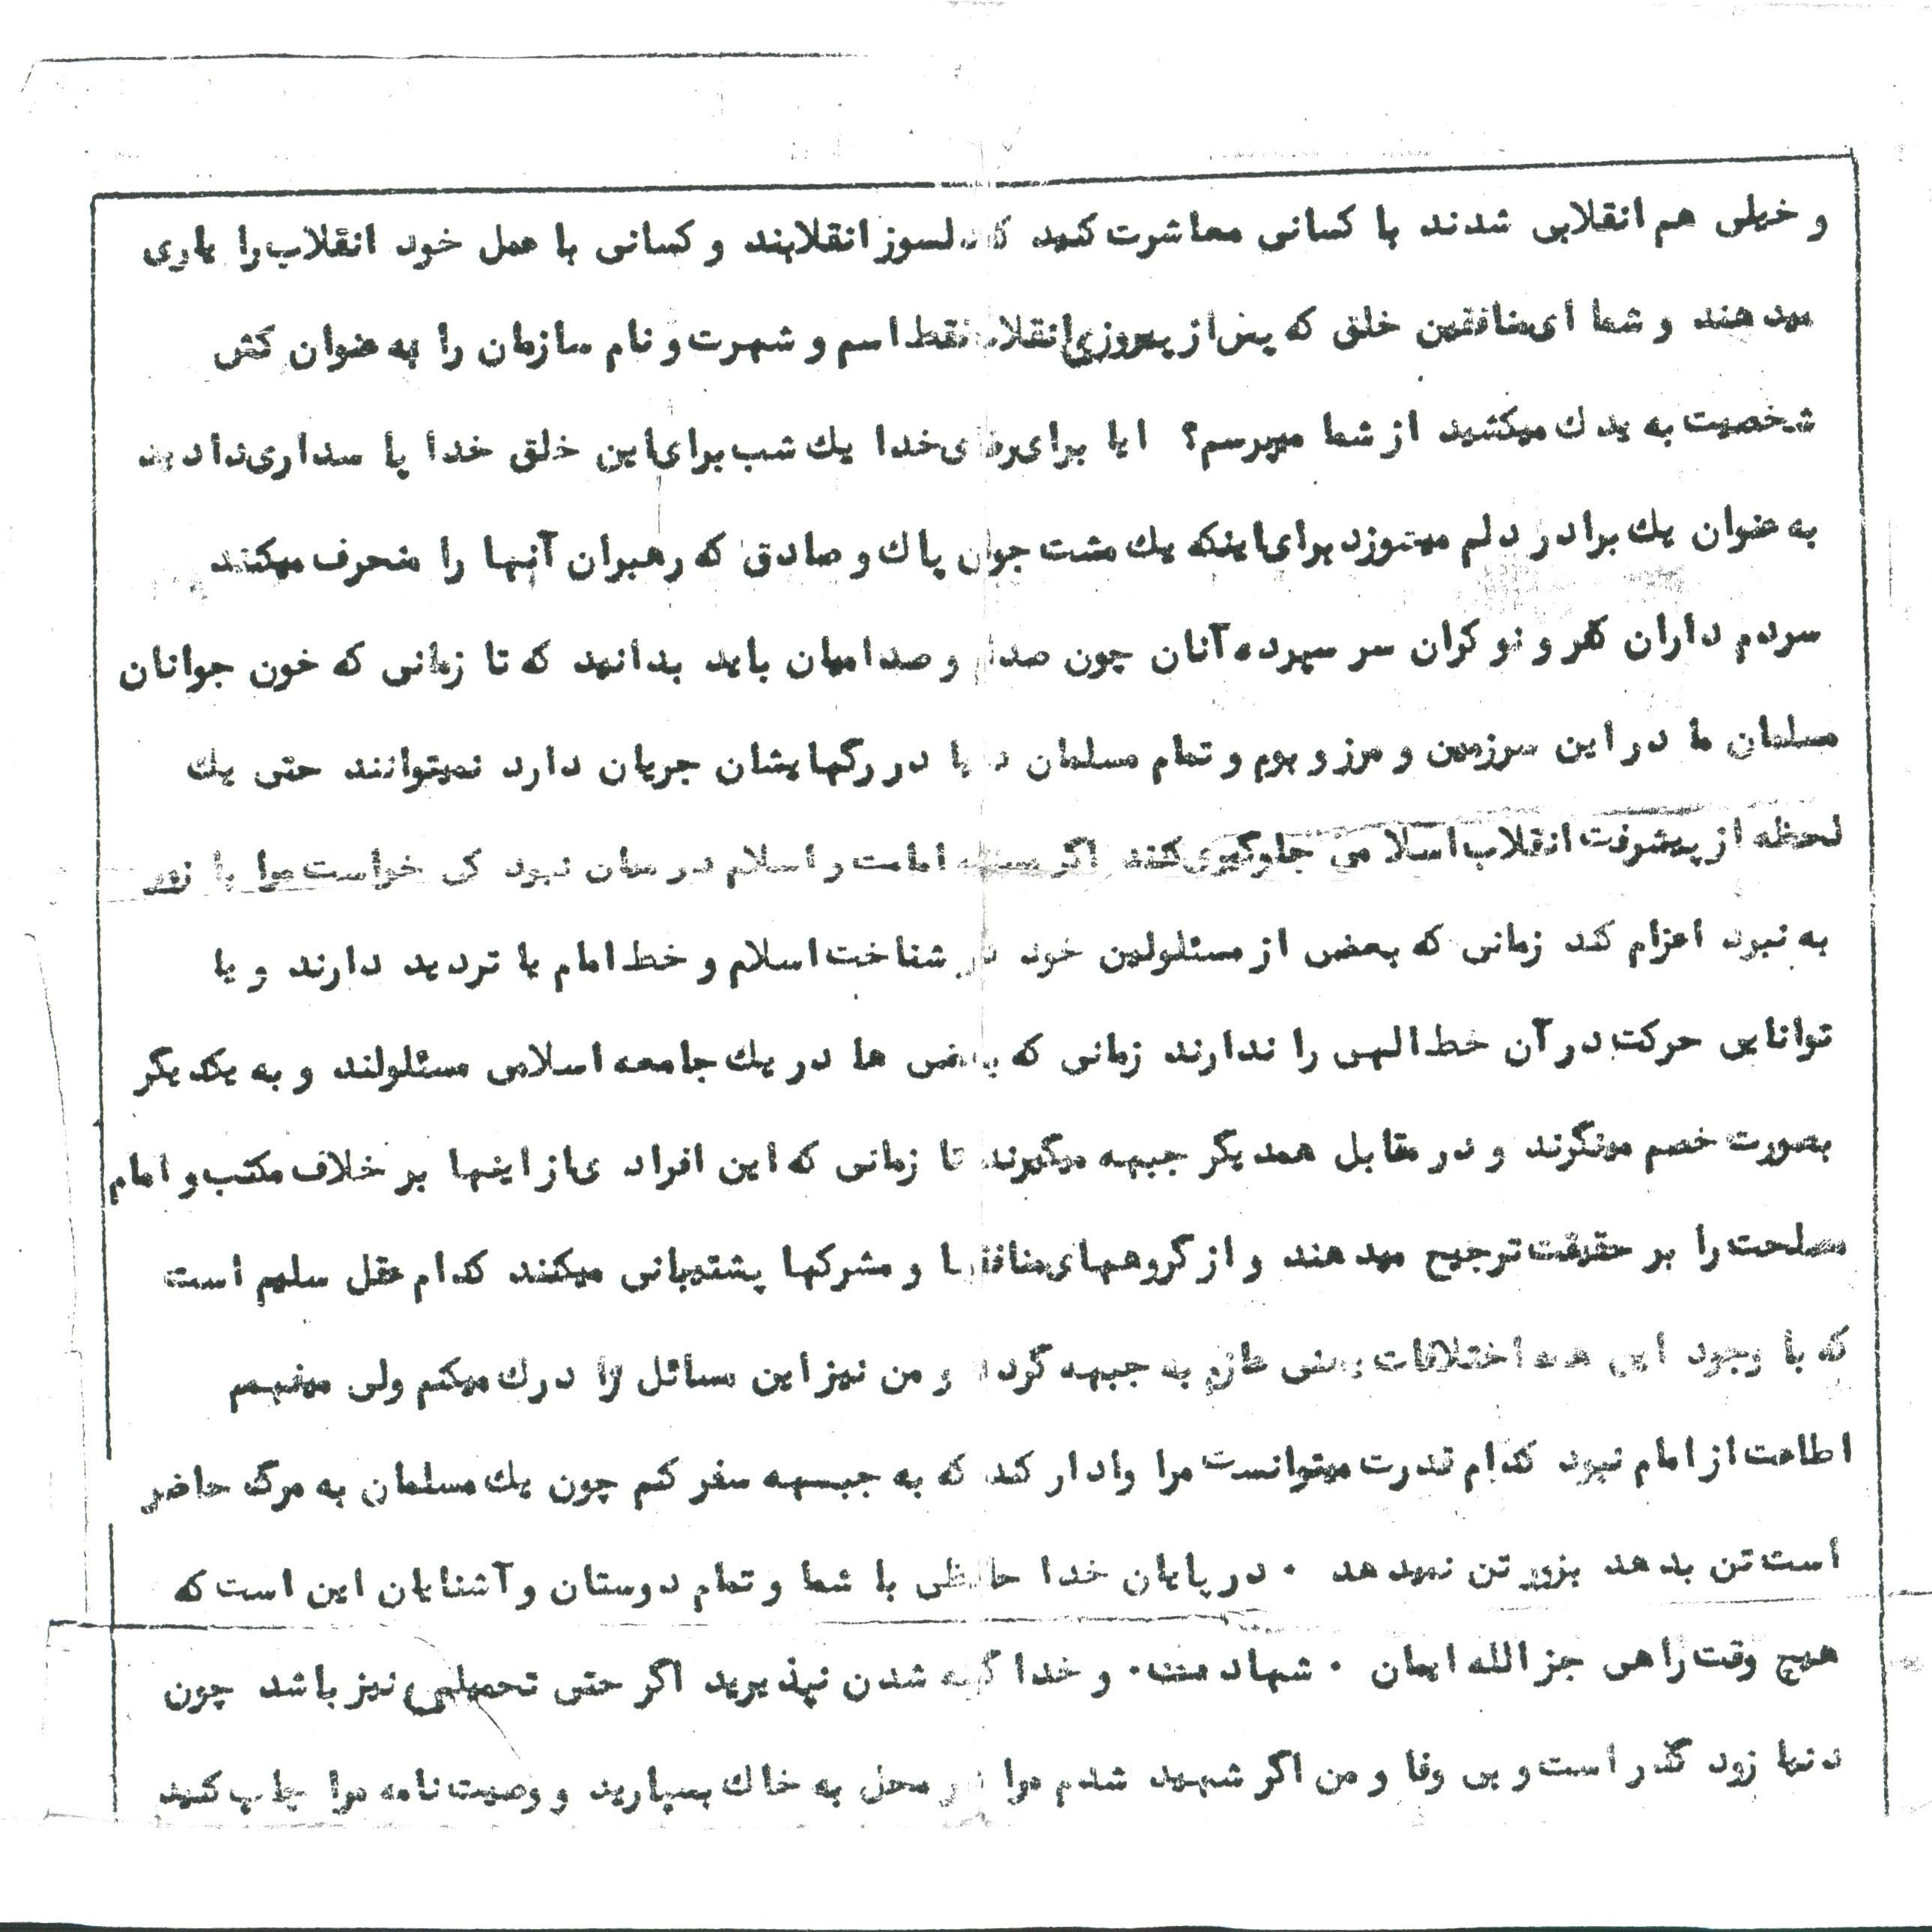 و خیلی هم انقلابی شدند با کسانی معاشرت کنید که دلسوز انقلابند و کسانی با عمل خود انقلاب را یاری
میدهند و شما ای منافقین خلق که پس از پیروزی انقلاب فقط اسم و شهرت و نام سازمان را به عنوان کش
شخصیت به یدک میکشید از شما میپرسم؟ ایا برای رضای خدا یک شب برای این خلق خدا پاسداری دادید
به عنوان یک برادر دلم میسوزد برای اینکه یک مشت جوان پاک و صادق که رهبران آنها را منحرف میکنند
سردم داران کفر و نوکران سر سپرده آنان چون صدام و صدامیان باید بدانید که تا زمانی که خون جوانان
مسلمان ما در این سرزمین و مرز و بوم و تمام مسلمان دنیا در رگهایشان جریان دارد نمیتوانند حتی یک
لحظه از پیشرفت انقلاب اسلامی جلوگیری کنند اگر مسئله امامت و اسلام در میان نبود کی خواست مرا با زور
به نبرد اعزام کند زمانی که بعضی از مسئلولین خود در شناخت اسلام و خط امام یا تردید دارند و یا
توانایی حرکت در آن خط الهی را ندارند زمانی که بعضی ها در یک جامعه اسلامی مسئلولند و به یکدیگر
بصورت خصم مینگرند و در مقابل همدیگر جبهه میگیرند تا زمانی که این افراد ی از اینها بر خلاف مکتب و امام
مصلحت را بر حقیقت ترجیح میدهند و از گروههای منافقها و مشرکها پشتیبانی میکنند کدام عقل سلیم است
که با وجود این همه اختلافات یعنی عازم به جبهه گردد و من نیز این مسائل را درک میکنم ولی میفهمم
اطاعت از امام نبود کدام قدرت میتوانست مرا وادار کند که به جبهه سفر کنم چون یک مسلمان به مرگ حاضر
است تن بدهد بزور تن نمیدهد ۰ در پایان خدا حافظی با شما و تمام دوستان و آشنایان این است که
هیچ وقت راهی جز الله ایمان ۰ شهادت ۰ و خدا گونه شدن نپذیرید اگر حتی تحمیلی نیز باشد چون
دنیا زود گذر است و بی وفا و من اگر شهید شدم مرا در محل به خاک بسپارید و وصیت نامه مرا چاپ کنید